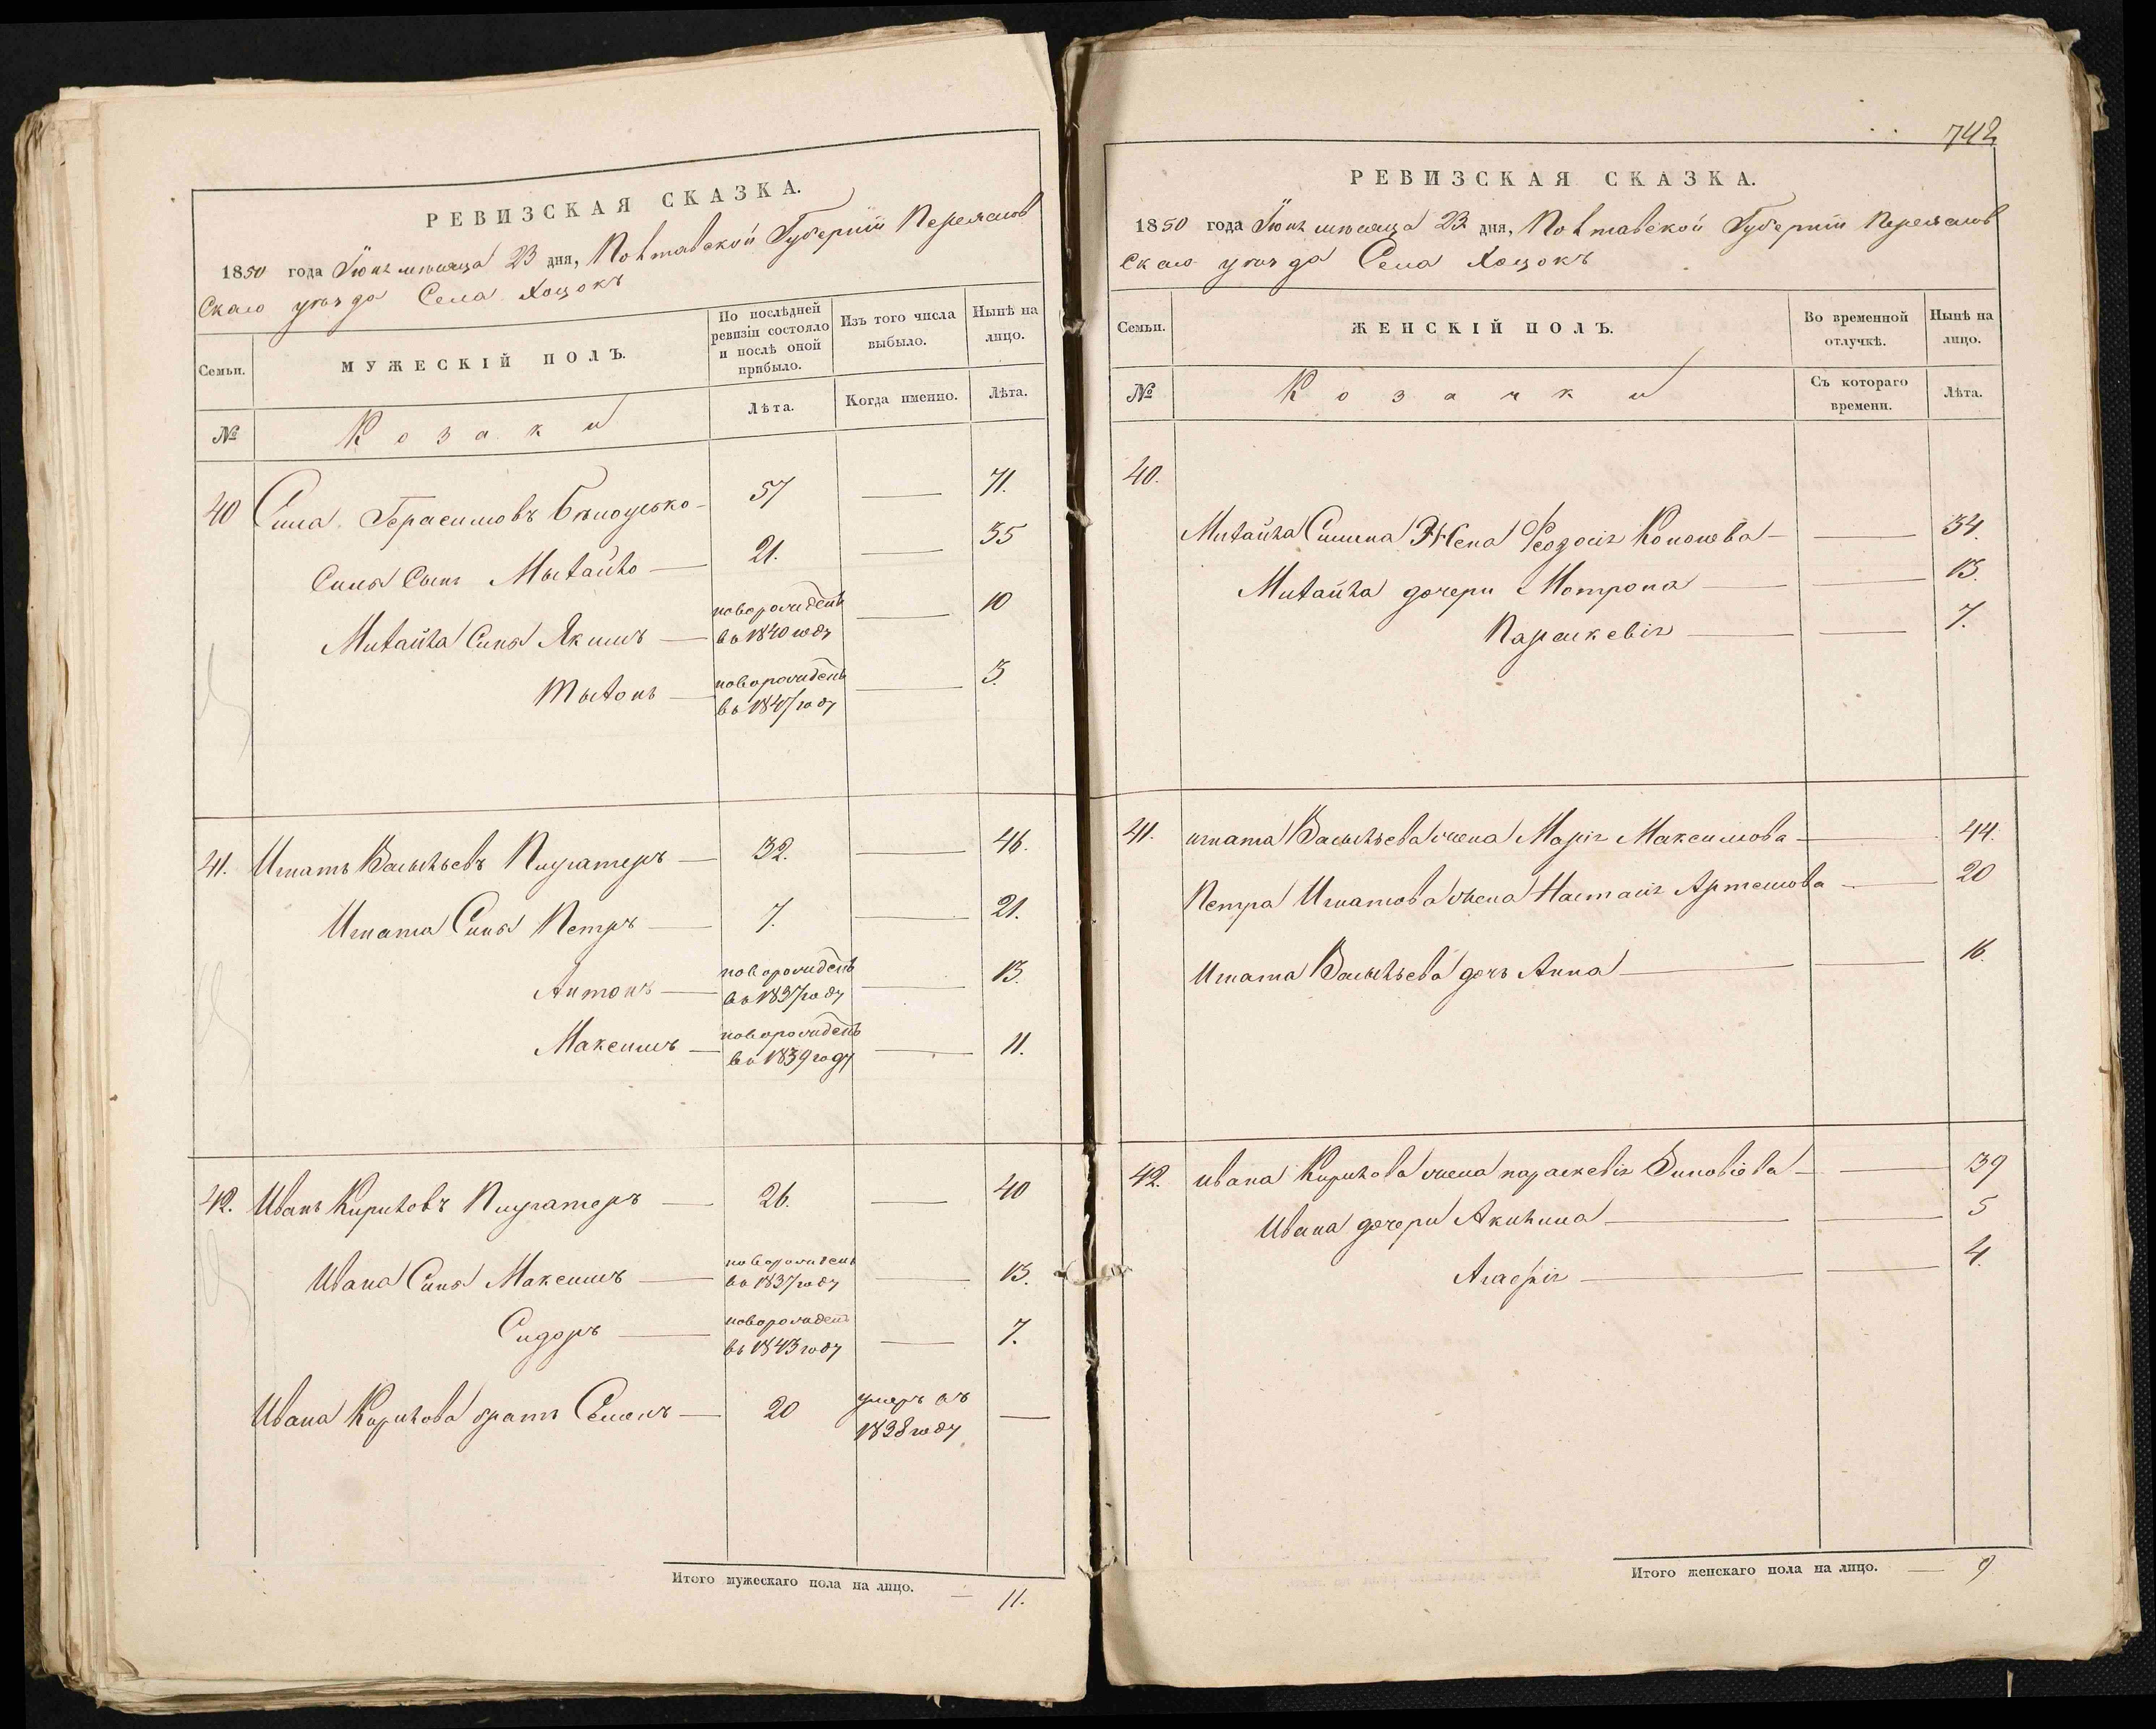 РЕВИЗСКАЯ СКАЗКА.
1850 года Іюнь мѣсяца 23 дня, Полтавской Губерніи Переяслов
Скаго уѣзда Села Хоцокъ
Семьи.
МУЖЕСКІЙ ПОЛЪ.
По послѣдней ревизіи состояло и послѣ оной прибыло.
Изъ того числа выбыло.
Нынѣ на лицо.
№
Козаки
Лѣта.
Когда именно.
Лѣта.
40 Сила Герасимовъ 57 — 71.
Силы Сынъ Михайло — 21. — 35
Михайла Сыны Якимъ — новорожденъ въ 1840 году — 10
Тихонъ — новорожденъ въ 1847 году — 3.
41. Игнатъ Васильевъ — 32. — 46.
Игната Сыны Петръ — 7. — 21.
Антонъ — новорожденъ въ 1837 году — 13.
Максимъ — новорожденъ въ 1839 году — 11.
42. Иванъ Кириловъ — 26. — 40
Ивана Сыны Максимъ — новорожденъ въ 1837 году — 13.
Сидоръ — новорожден въ 1843 году — 7.
Ивана Кирилова братъ Семенъ — 20 умеръ въ 1838 году —
Итого мужескаго пола на лицо. — 11.
742
РЕВИЗСКАЯ СКАЗКА.
1850 года Іюнь мѣсяца 23 дня, Полтавской Губерніи Переяслов
Скаго уѣзда Села Хоцокъ
Семьи.
ЖЕНСКІЙ ПОЛЪ.
Во временной отлучкѣ.
Нынѣ на лицо.
№
Козачки
Съ котораго времени.
Лѣта.
40.
Михайла Силина Жена Феодосія Кононова — — 34.
Михайла дочери Мотрона — — 13.
Параскевія — — 7.
41. Игната Васильева жена Марія Максимова — 44.
Петра Игнатова жена Настасія Артемова — 20
Игната Васильева дочь Анна — — 16.
42. Ивана Кирилова жена параскевія Зиновіева — — 39
Ивана дочери Акилина — — 5
Агафія — — 4.
Итого женскаго пола на лицо. — 9